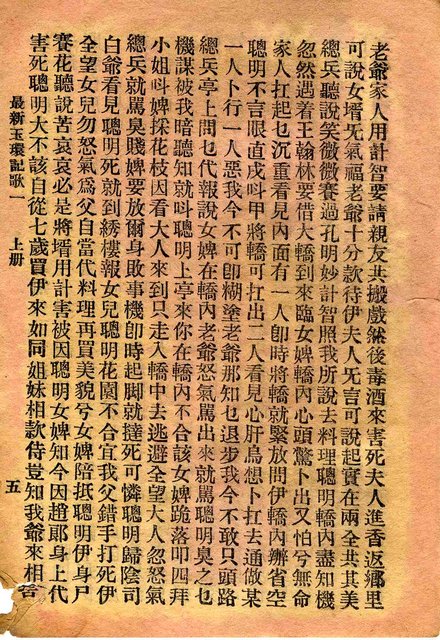 老爺家人用計智要請親友共搬戲然後毒酒來害死夫人進香返鄉里
可說女壻旡氣福老爺十分款待伊夫人旡言可說起實在兩全共其美
總兵聽說笑微微賽過孔明妙計智照我所說去料理聰明轎內盡知機
忽然遇着王翰林要借大轎到來臨女婢轎內心頭驚卜出又怕兮無命
家人扛起乜沉重看見內面有一人卽時將轎就緊放問伊轎內辦省空
聰明不言眼直戌呌甲將轎可扛出二人看見心肝鳥想卜扛去通做某
一人卜行一人惡我今不可卽糊塗老爺那知乜退步我今不敢只頭路
總兵亭上問乜代報說女婢在轎內老爺怒氣罵出來就罵聰明臭之乜
機謀被我暗聽知就呌聰明上亭來你在轎內不合該女婢跪落叩四拜
小姐呌婢採花枝因看大人來到只走入轎中去逃避全望大人忽怒氣
總兵就罵臭賤婢要放爾身敗事機卽時起脚就撻死可憐聰明歸陰司
白爺看見聰明死就到綉樓報女兒聰明花園不合宜我父錯手打死伊
全望女兒勿怒氣爲父自當代料理再買美貌兮女婢陪抵聰明伊身尸
賽花聽說苦哀哀必是將壻用計害被因聰明女婢知今因趙郎身上代
害死聰明大不該自從七歲買伊來如同姐妹相款待豈知我爺來相害
最新玉環記歌一　上册　五